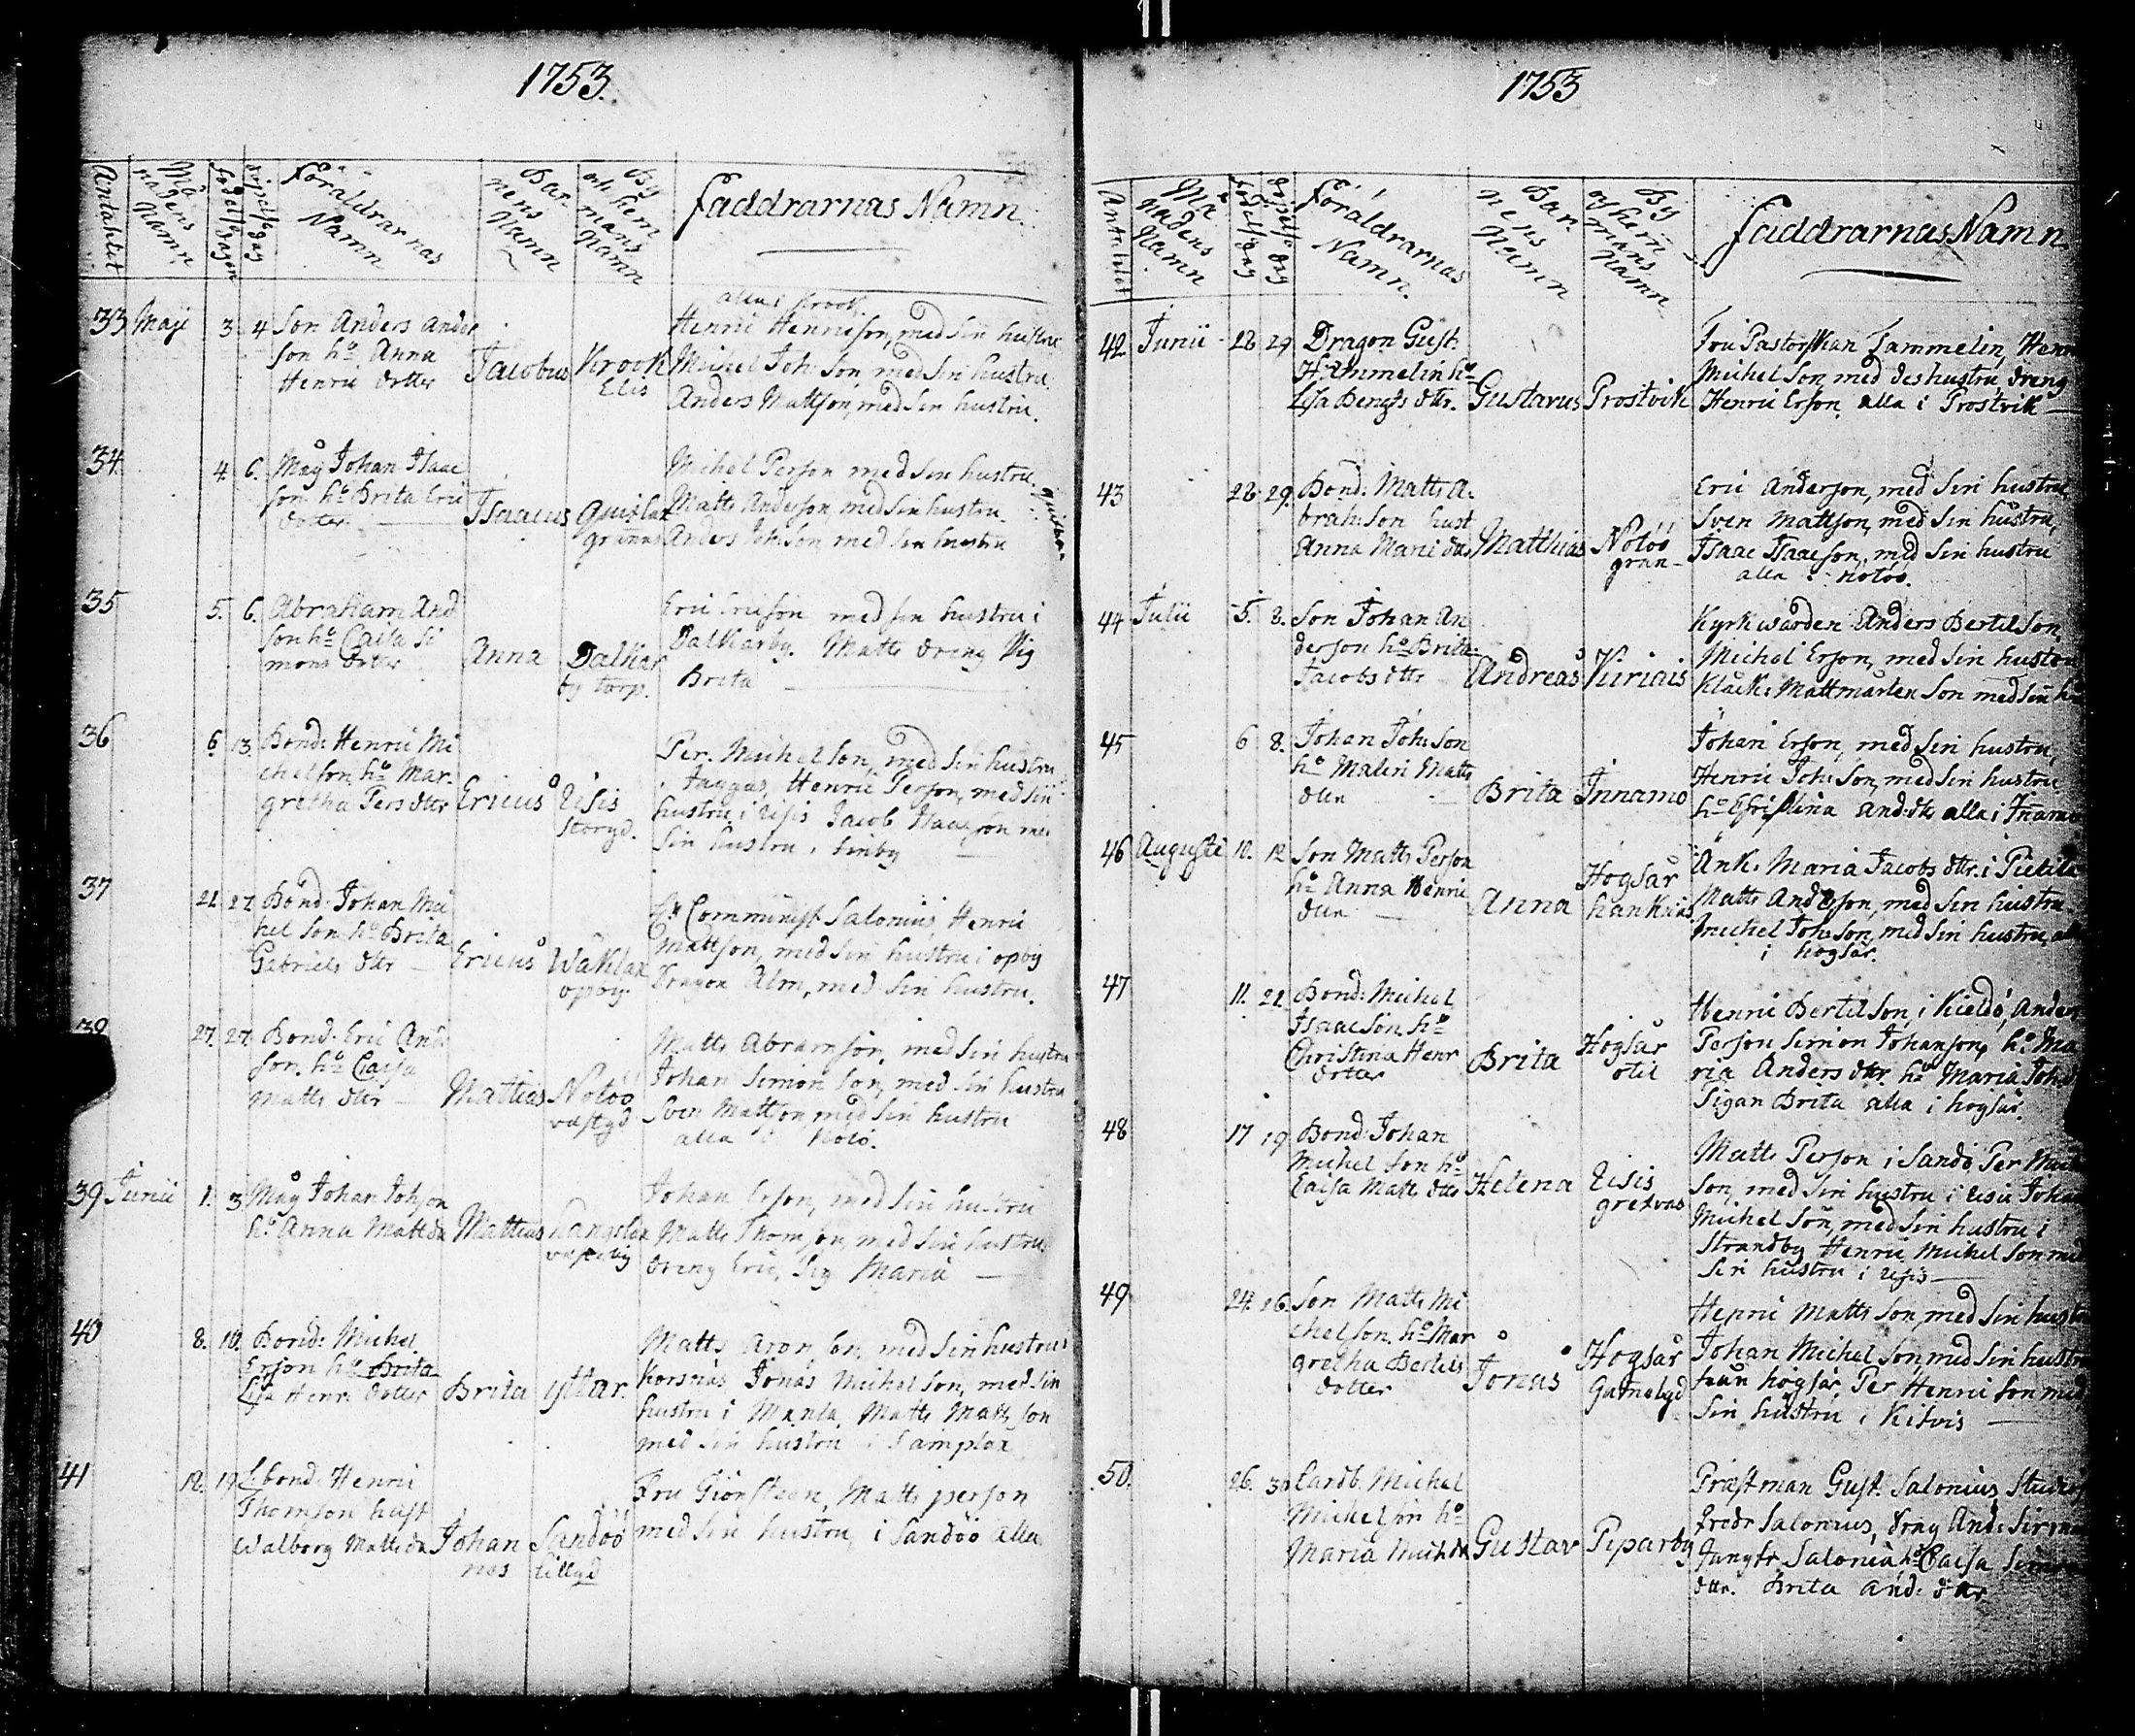 1753.
Antahlet
Må
nadens
Namn
födelse
dagen
döpelse
dag
Föräldrarnas
Namn
Bar-
nens
Namn
By
och hem
mans
Namn
Faddrarnas Namn.
33 Maji 3. 4 Son Anders Ander
son h:o Anna
Henric dotter
Jacobus
Krook
Elis
alla i Krook.
Henric Henricson, med sin hustru
Michel Joh: Son, med sin hustru.
Anders Mattson, med sin hustru.
34. 4. 6. Måg Johan Isaac
son h:o Brita Eric
dotter
Isaacus
grannas
Michel Person med sin hustru
Matts Anderson, med sin hustru
Anders Joh: Son, med sin hustru
35 5. 6. Abraham And
son h:o Caisa Si
mons dotter
Anna
Dalkar
by torp.
Eric Ericson med sin hustru i
Dalkarby. Matts dreng Pig
Brita
36 6. 13. Bond: Henric Mi
chelson, h:o Mar-
gretha Pers dttr
Ericus
Storgd.
Per. Michelson, med sin hustru
Henric Person, med sin
hustru i Jacob Isaacson med
sin hustru i Finby
37 21. 27. Bond: Johan Mic
hel Son h:o Brita
Gabriels dttr
Ericus
Wåhlax
opby.
Communist. Salonius, Henric
Mattson, med sin hustru i opby
Dragon Alm, med sin hustru.
38 27. 27. Bond. Eric And:
son. h:o Caisa
Matts dttr
Mattias
Nötöö
vestgd
Matts Abramson, med sin hustru
Johan Simon Son, med sin hustru
Sven Mattson med sin hustru
alla i Nötö.
39 Junii 1. 3 Måg Johan Johson
h:o Anna Matt dtr
Mattias
vesterby
Johan Erson, med sin hustru
Matts Thomson, med sin hustru
dreng Eric, Pig Maria
40 8. 10. Bond: Michel
Erson h:o Brita
Lisa Henr: dotter
Brita
Yttar.
Matts Aron son, med sin hustru
Korsnäs Jonas Michelson, med sin
hustru i Manla, Matts Matts son
med sin hustru i Samplax
41 12. 19. L:bond: Henric
Thomson hust
Walborg Matts dtr
Johan
nes
Sandöö
tillgd
Fru Giönsteen, Matts person
med sin hustru, i Sandöö alla
1753
Antahlet
Må
nadens
Namn
födelse
dag
döpelse
dag
Föräldrarnas
Namn.
Bar
nens
Namn
By
och hem
mans
Namn
Faddrarnas Namn
42 Junii 28 29 Dragon Gust.
Hammelin h:o
Lisa Bengts dttr.
Gustavus
Prostvik
Fru Pastorskan Tammelin, Henr
Michelson, med des hustru, dreng
Henric Erson, alla i Prostvik
43 28 29. Bond: Matts A:
brah: Son hust
Anna Marci dtr
Matthias
Nötöö
gran
Eric Anderson, med sin hustru
Sven Mattson, med sin hustru,
Isaac Isaacson, med sin hustru
alla i nötöö.
44 Julii 5. 8. Son Johan An
derson h:o Brita
Jacobs dttr
Andreas
Kiriais
Kyrkwärden Anders Bertel Son,
Michel Erson, med sin hustru
Klåck: Matt Mårten Son med sin h
45 6 8. Johan Joh: Son
h:o Malin Matts
dttr
Brita
Innamo
Johan Erson, med sin hustru,
Henric Joh: Son, med sin hustru
h:o Christina And: dtr alla i Inamo
46 Augusti 10. 12 Son Matts Person
h:o Anna Henric
dttr
Anna
Högsår
Änk: Maria Jacobs dttr. i Pietila
Matts Anderson, med sin hustru
Michel Joh: Son, med sin hustru, alla
i högsår.
47 11. 21. Bond: Michel
Isaac Son h:o
Christina Henr
dotter
Brita
Högsår
otil
Henric Bertel Son, i Kieldö, Anders
Person Simon Johanson, h:o Ma
ria Anders dttr. h:o Maria Joh
Pigan Brita alla i högsår.
48 17 19 Bond: Johan
Michel Son h:o
Caisa Matts dttr
Helena
Matts Person i Sandö Per Mich
Son, med sin hustru i Johan
Michel Son, med sin hustru i
Strandby Henric Michel Son med
sin hustru i
49 24. 26. Son Matts Mi
chelson, h:o Mar
gretha Bertils
dotter
Jonas
Högsår
Gamelgd
Henric Matts Son, med sin hustr
Johan Michel Son, med sin hustru
från högsår. Per Henric Son med
sin hustru i Kitvis
50. 26. 30 Landb. Michel
Michelson h:o
Maria Mich: dtr
Gustav
Piparby
Præstman Gust. Salonius, Studer
Fredr Salonius, dreng And: Simon
Jungfr Salonia, h:o Caisa Simons
dttr. Brita And: dttr